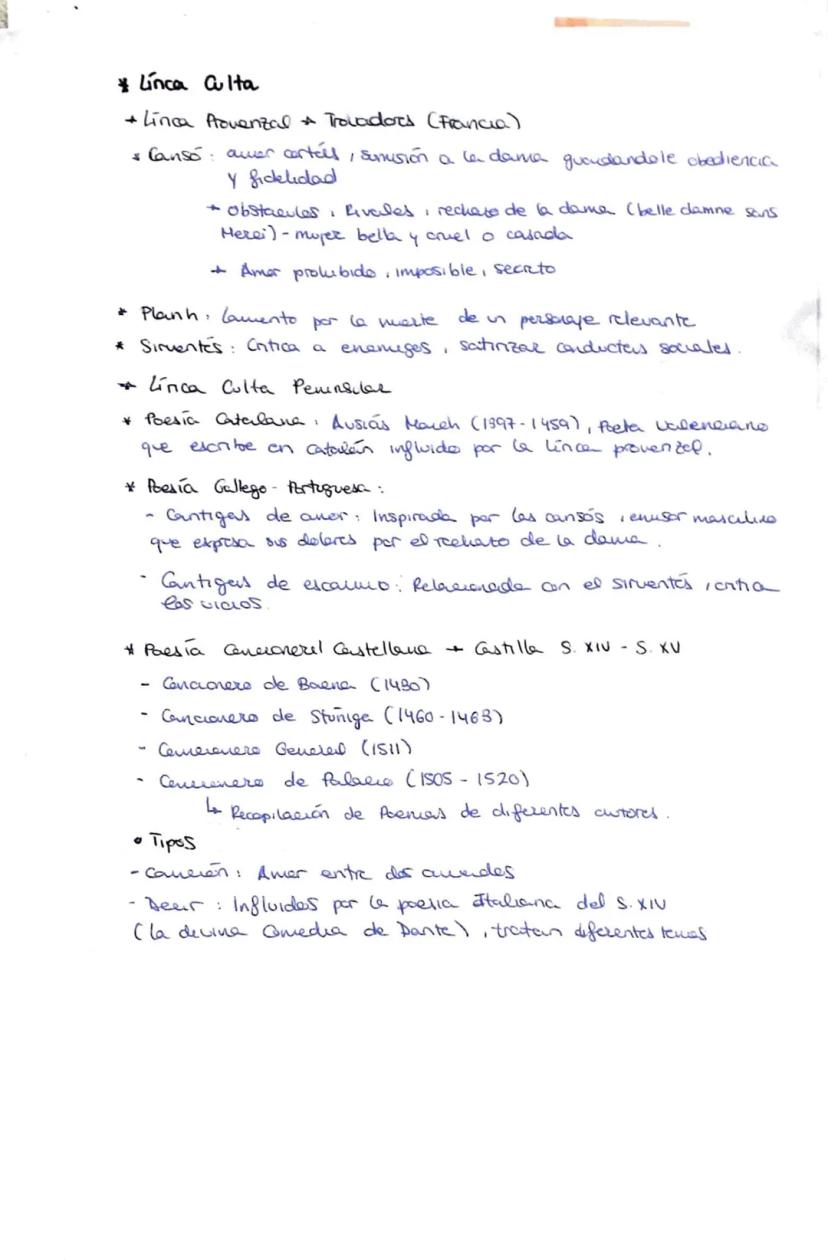 * Lírica Culta
→ Lírica Provenzal → Trovadores (Francia)
* Cansó: amor cortés, sumisión a la dama guardandole obediencia
y fidelidad
→ Obstaculos, Rivales, rechazo de la dama (belle damne sans
Merci) - mujer bella y cruel o casada
→ Amor prohibido, imposible, secreto
* Planh: lamento por la muerte de un personaje relevante
* Sirventés: Critica a enemigos, satirizar conductas sociales.
→ Lírica Culta Peninsular
* Poesía Catalana: Ausiás March (1397-1459), Poeta Valenciano
que escribe en catalán influido por la lírica provenzal.
* Poesía Gallego-Portuguesa:
- Cantigas de amor: Inspirada por las cansós, emisor masculino
que expresa sus dolores por el rechazo de la dama.
- Cantigas de escarnio: Relacionada con el sirventés, critia
los vicios.
* Poesía Cancioneril Castellana → Castilla S. XIV - S. XV
- Cancionero de Baena (1430)
- Cancionero de Stúñiga (1460-1463)
- Cancionero General (1511)
- Cancionero de Palacio (1505-1520)
↳ Recopilación de Poemas de diferentes autores.
• Tipos
- Canción: Amor entre dos amados
- Decir: Influidos por la poesia Italiana del S. XIV
(la devina Comedia de Dante), tratan diferentes temas